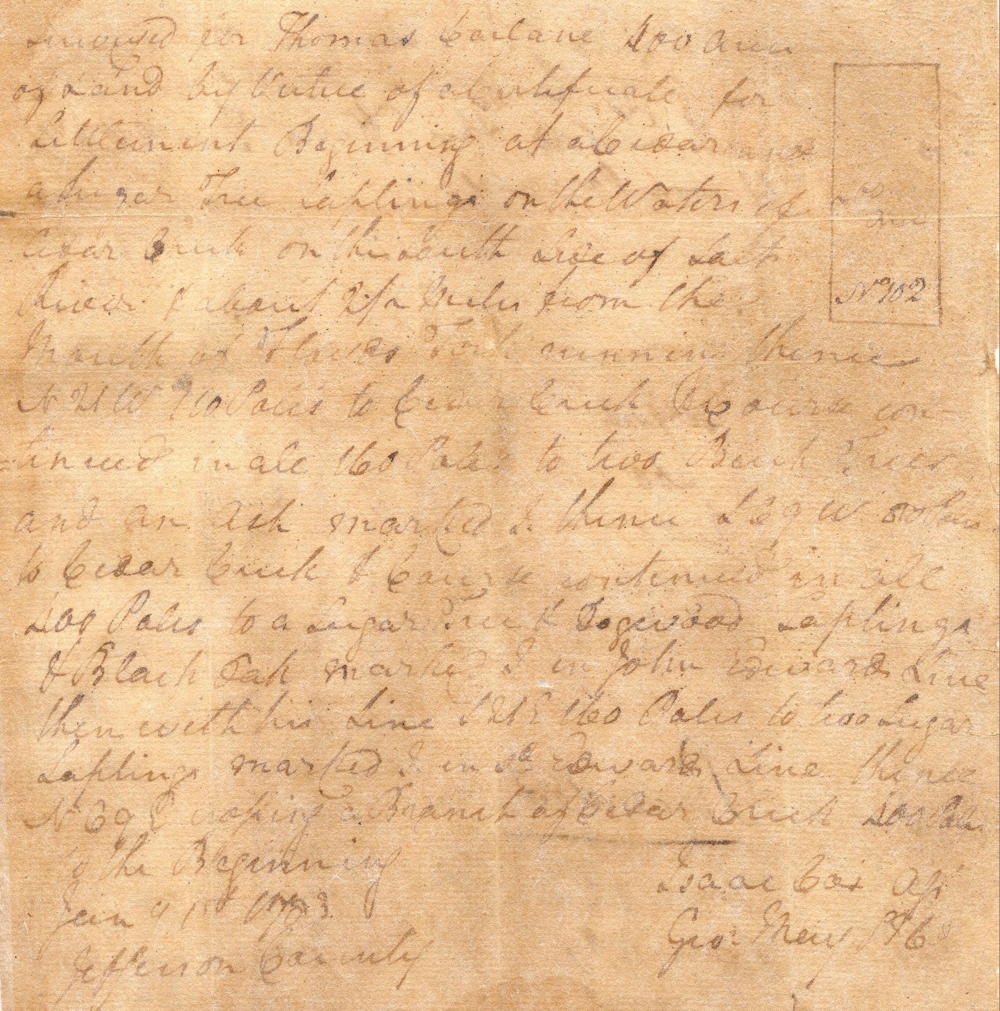 Surveyed for Thomas Carlane 400 acres
of Land by Virtue of a Certificate for
Settlement Beginning at a Cedar and
a Sugar Tree Saplings on the Waters of
Cedar Creek on the South Side of Salt
River & about 2½ Miles from the
Mouth of Floyds Fork running thence
N 21 W Poles to Cedar Creek & Course con-
tinued in all 160 Poles to two Beech Trees
and an Ash marked I thence S 69 W Poles
to Cedar Creek & Course continued in all
400 Poles to a Sugar Tree & Dogwood Saplings
& Black Oak marked I in John Edwards Line
then with his Line S 21 E 160 Poles to two Sugar
Saplings marked I in sd Edwards Line thence
N 69 E crossing a Branch of Cedar Creek 400 Poles
to the Beginning
Jan
Jefferson County
Isaac Cox
Geo. May
No 102